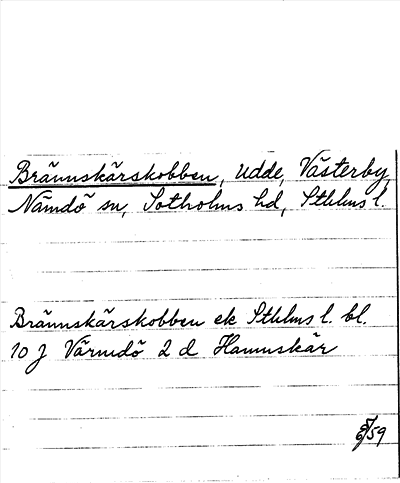 Brännskärskobben, udde, Västerby,
Nämdö sn, Sotholms hd, Sthlms l.
Brännskärskobben ek Sthlms l. bl.
10 J Värmdö 2 d Hamnskär
59